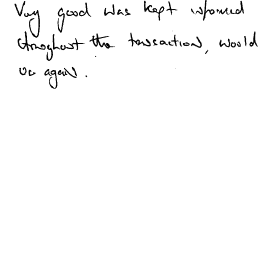 Very good was kept informed
throughout the transaction, would
use again.